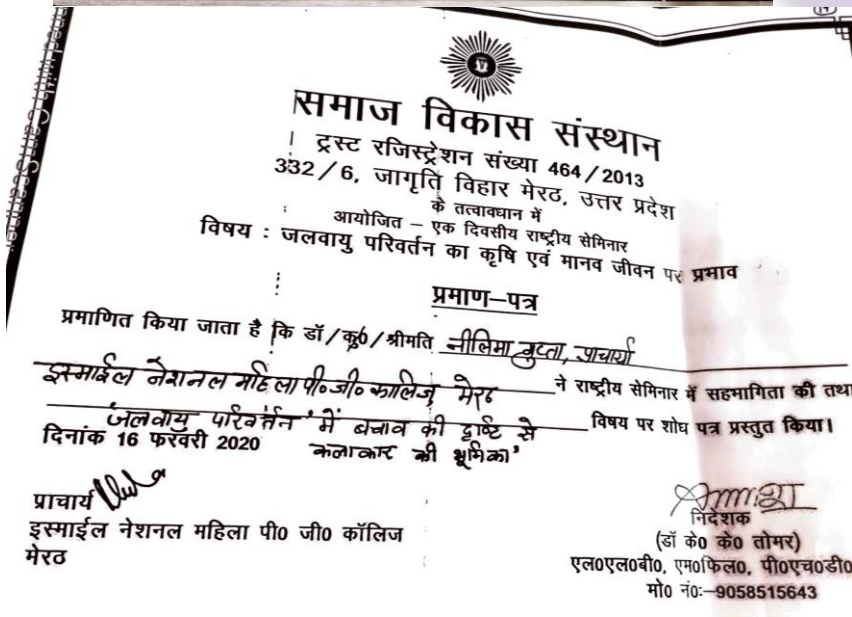 समाज विकास संस्थान
ट्रस्ट रजिस्ट्रेशन संख्या 464/2013
332/6, जागृति विहार मेरठ, उत्तर प्रदेश
के तत्वावधान में
आयोजित – एक दिवसीय राष्ट्रीय सेमिनार
विषय : जलवायु परिवर्तन का कृषि एवं मानव जीवन पर प्रभाव
प्रमाण–पत्र
प्रमाणित किया जाता है कि डॉ/कु0/श्रीमति नीलिमा गुप्ता, प्राचार्या
इस्माईल नेशनल महिला पी० जी० कालिज मेरठ ने राष्ट्रीय सेमिनार में सहभागिता की तथा
'जलवायु परिवर्तन' में बचाव की दृष्टि से विषय पर शोध पत्र प्रस्तुत किया।
दिनांक 16 फरवरी 2020 कलाकार की भूमिका'
प्राचार्य
इस्माईल नेशनल महिला पी0 जी0 कॉलिज
मेरठ
निदेशक
(डॉ के0 के0 तोमर)
एल0एल0बी0, एम0फिल0, पी0एच0डी0
मो0 नं0:–9058515643